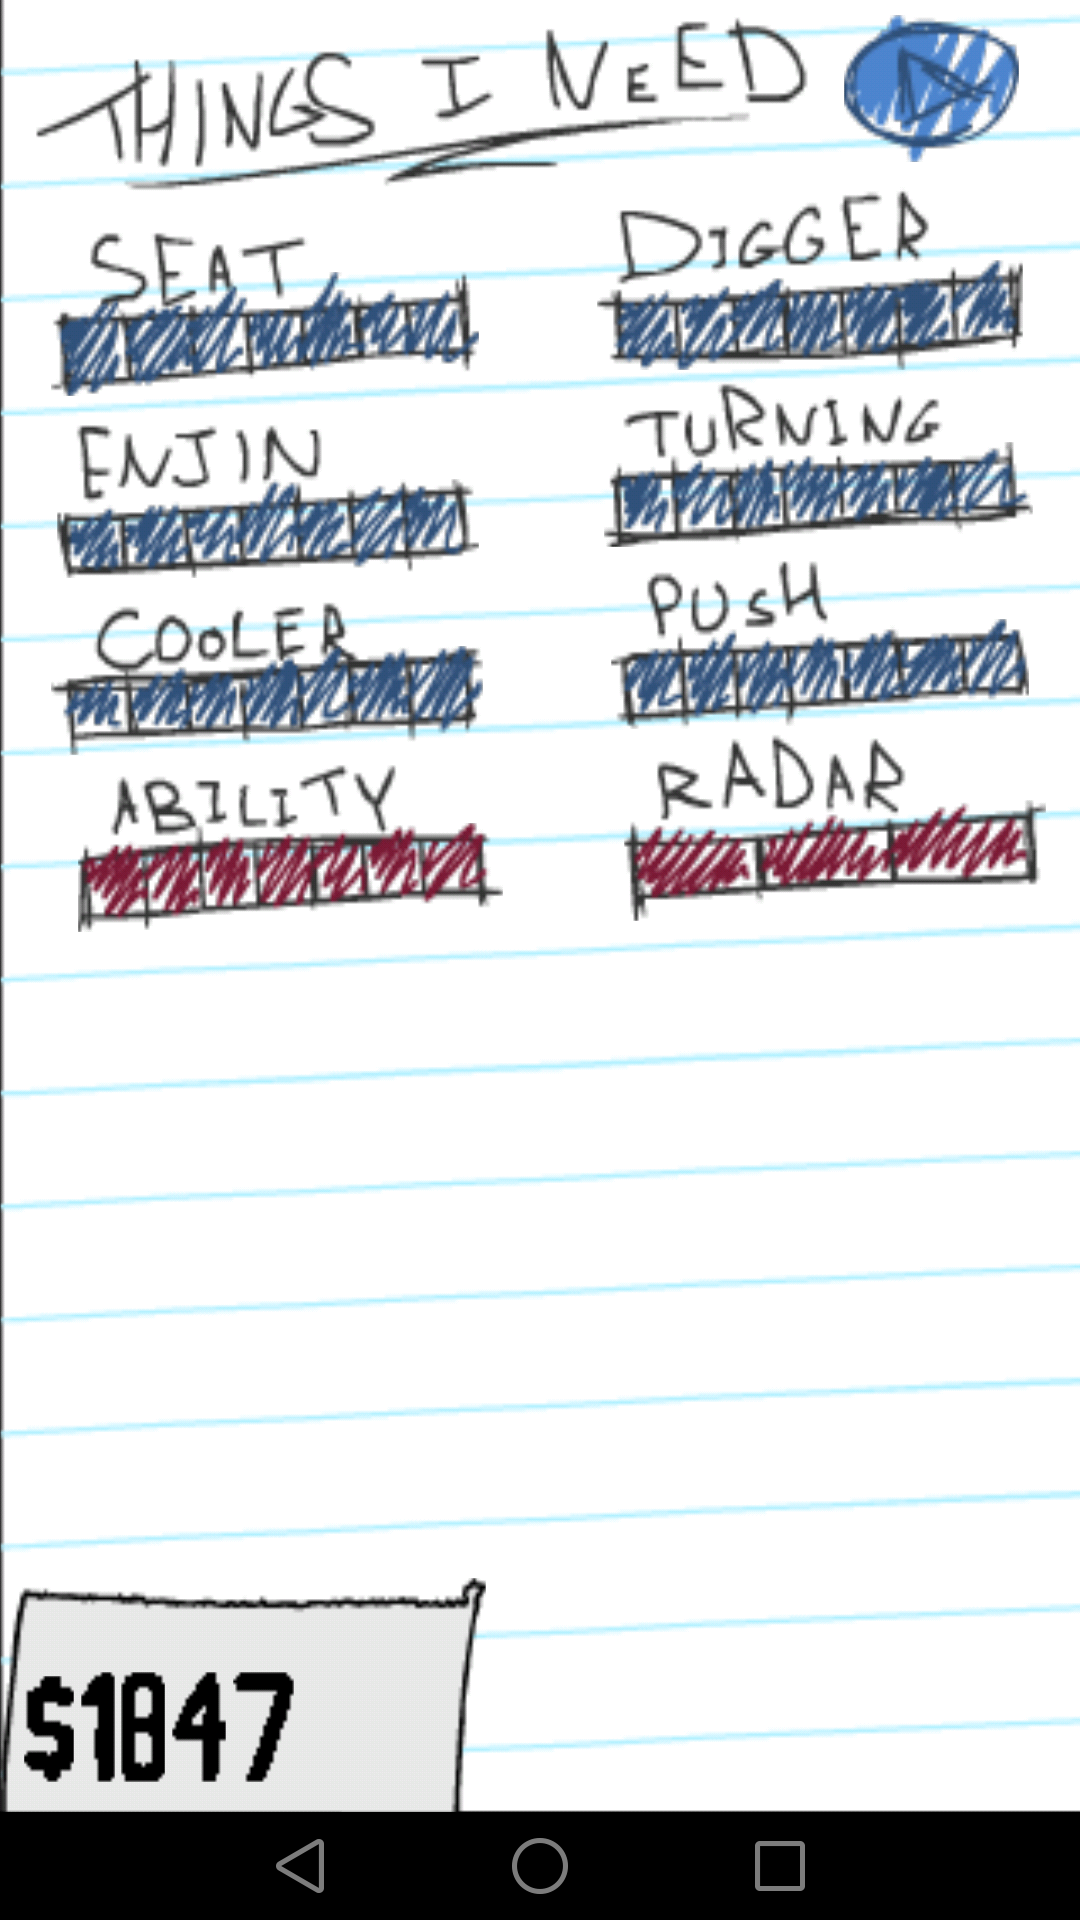 THINGS I NEED
SEAT DIGGER
ENJIN TURNING
COOLER PUSH
ABILITY RADAR
$1847